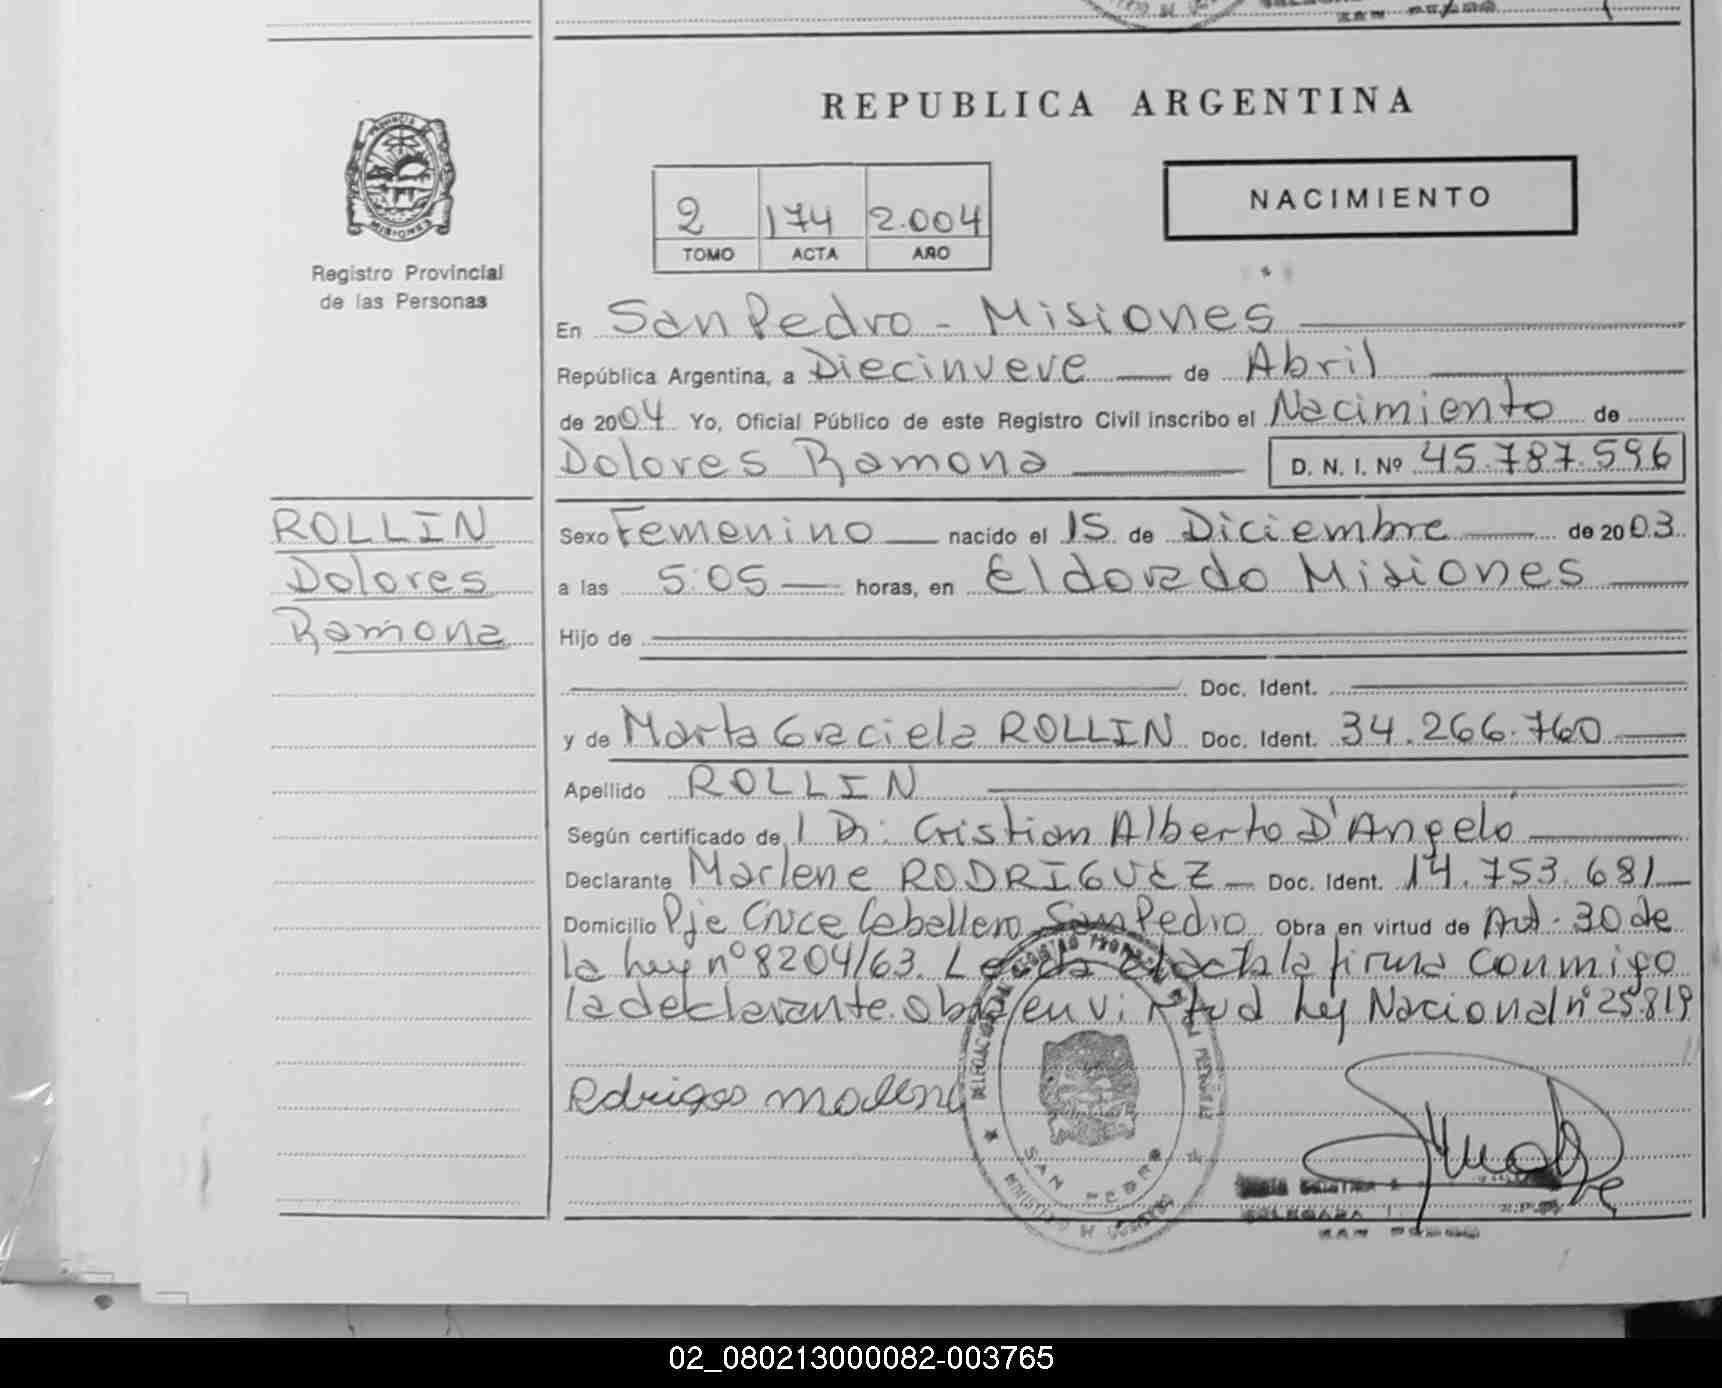 REPUBLICA ARGENTINA
PROVINCIA DE MISIONES
Registro Provincial
de las Personas
2 174 2.004
TOMO ACTA AÑO
NACIMIENTO
En San Pedro - Misiones
República Argentina, a Diecinueve de Abril
de 2004 Yo, Oficial Público de este Registro Civil inscribo el Nacimiento de
Dolores Ramona D. N. I. Nº 45.787.596
ROLLIN
Dolores
Ramona
Sexo Femenino nacido el 15 de Diciembre de 2003
a las 5:05 horas, en Eldorado Misiones
Hijo de
Doc. Ident.
y de Marta Graciela ROLLIN Doc. Ident. 34.266.760
Apellido ROLLIN
Según certificado de l Dr: Cristian Alberto D'Angelo
Declarante Marlene RODRIGUEZ Doc. Ident. 14.753.681
Domicilio Pje Cruce Caballero San Pedro Obra en virtud de Art. 30 de
la ley nº 8204/63. Leida el acta la firma conmigo
la declarante. obra en virtud ley Nacional nº 25.819
SAN PEDRO
MINISTERIO DE GOBIERNO
SAN PEDRO
02_080213000082-003765